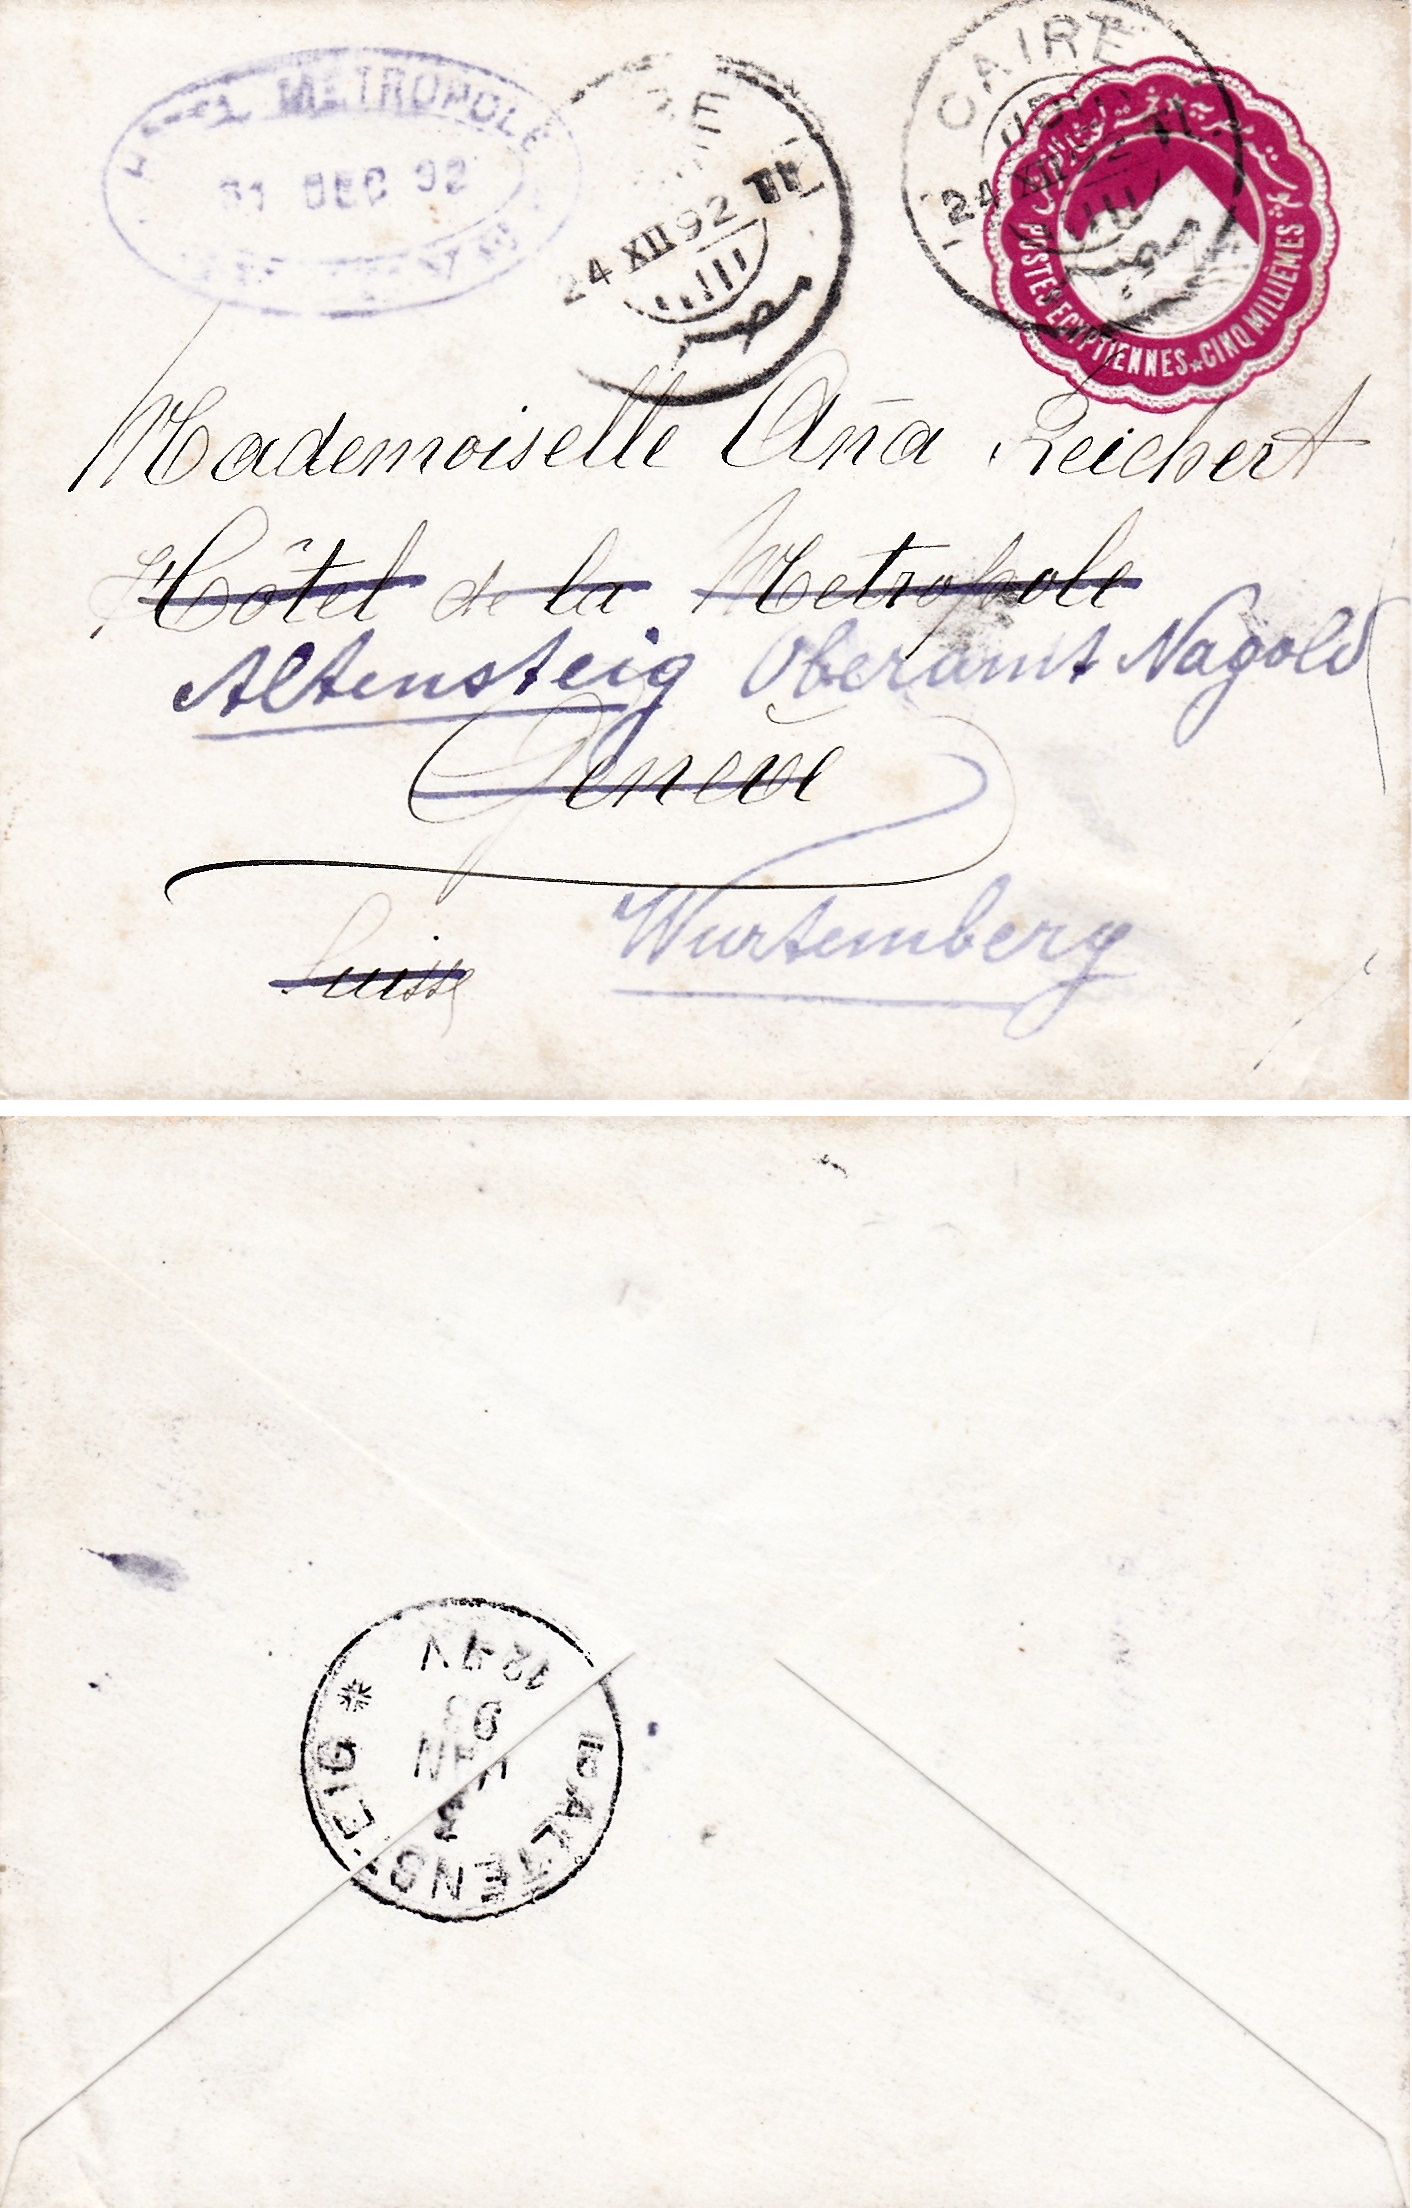 HOTEL METROPOLE
31 DEC 92
CAIRE
24 XII 92 T I
مصر
CAIRE
24 XII 92 T I
مصر
POSTES EGYPTIENNES * CINQ MILLIÈMES
Mademoiselle Ana Reichert
Hôtel de la Metropole
Altensteig Oberamt Nagold
Genève
Wurtemberg
Suisse
ALTENSTEIG
3
JAN
93
12-1 V